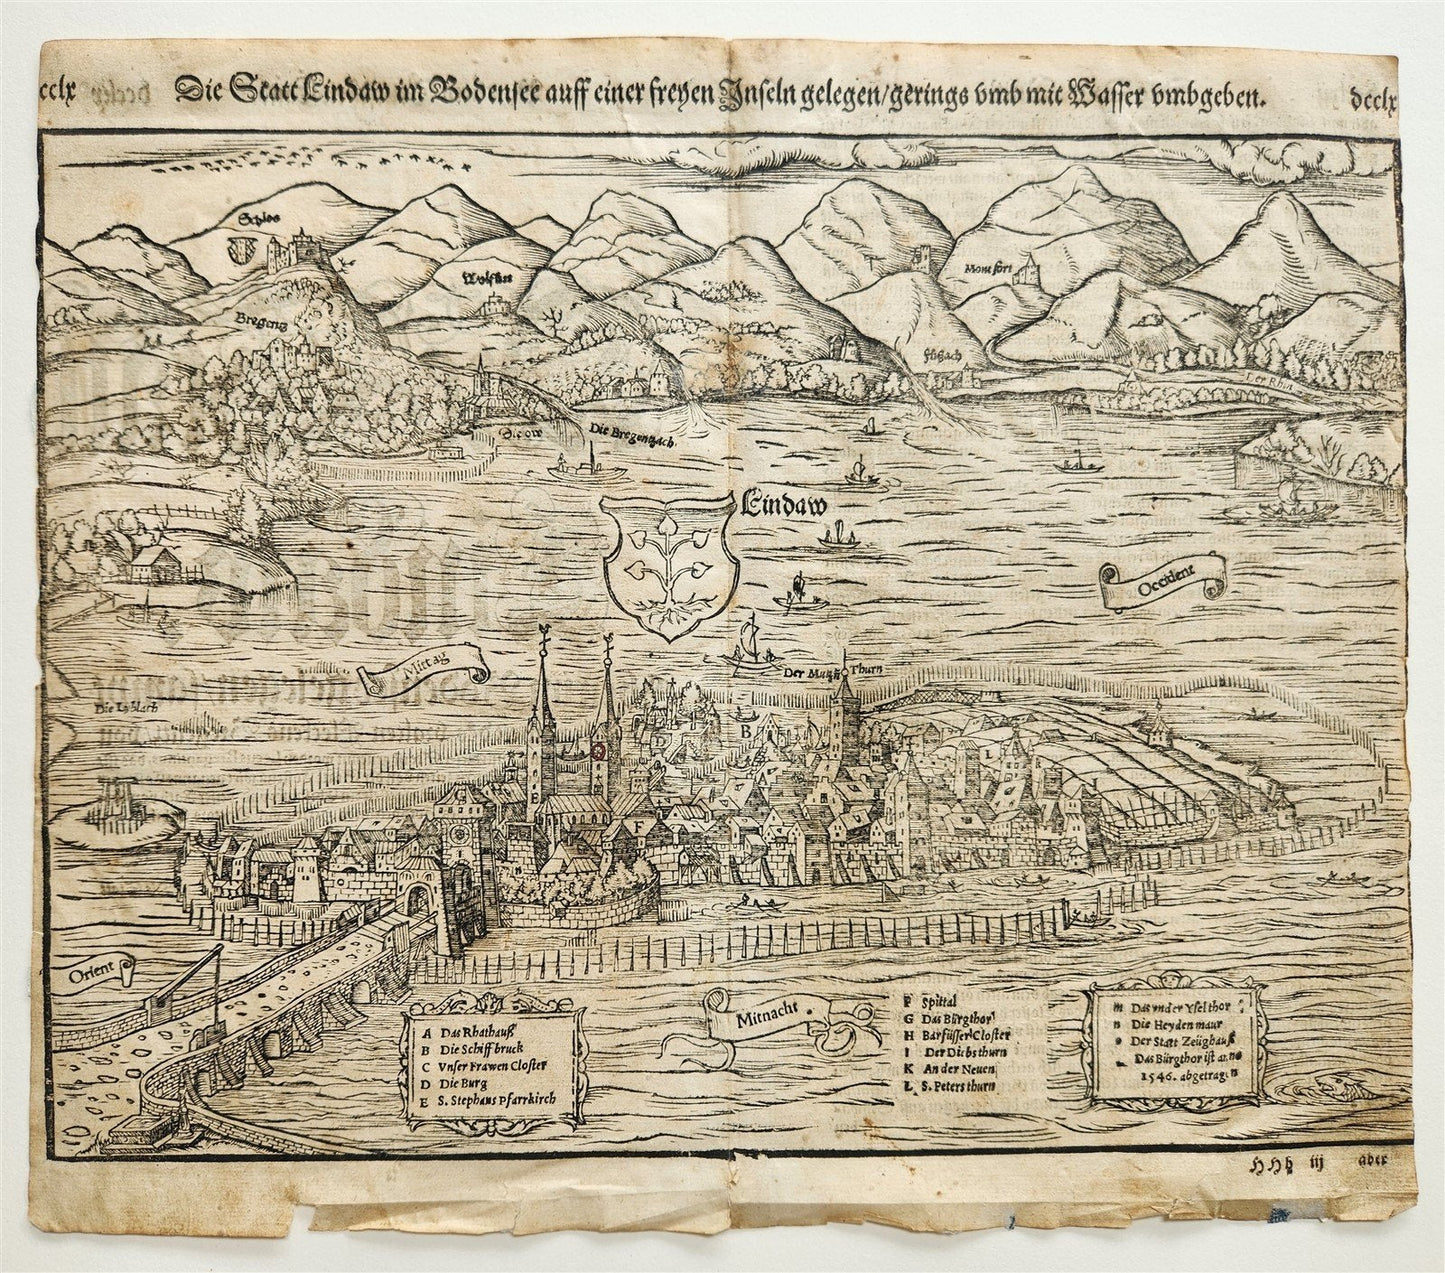 cclx
Die Statt Lindaw im Bodensee auff einer freyen Inseln gelegen/gerings vmb mit Wasser vmbgeben.
dcclx
Schlos
Wolffurt
Montfort
Bregentz
Füsach
Der Rhin
Die Bregentzach
Lindaw
Occident
Mittag
Der Mangen Thurn
Die Lyblach
D
B
E
F
Orient
Mitnacht
A Das Rhathauß
B Die Schiff bruck
C Vnser Frawen Closter
D Die Burg
E S. Stephans Pfarrkirch
F Spittal
G Das Bürgthor
H Barfüsser Closter
I Der Diebsthurn
K An der Neuen
L S. Peters thurn
m Das vnder Ysel thor
n Die Heyden maur
o Der Statt Zeüghauß
Das Bürgthor ist anno
1546. abgetragen
HHh iij
aber